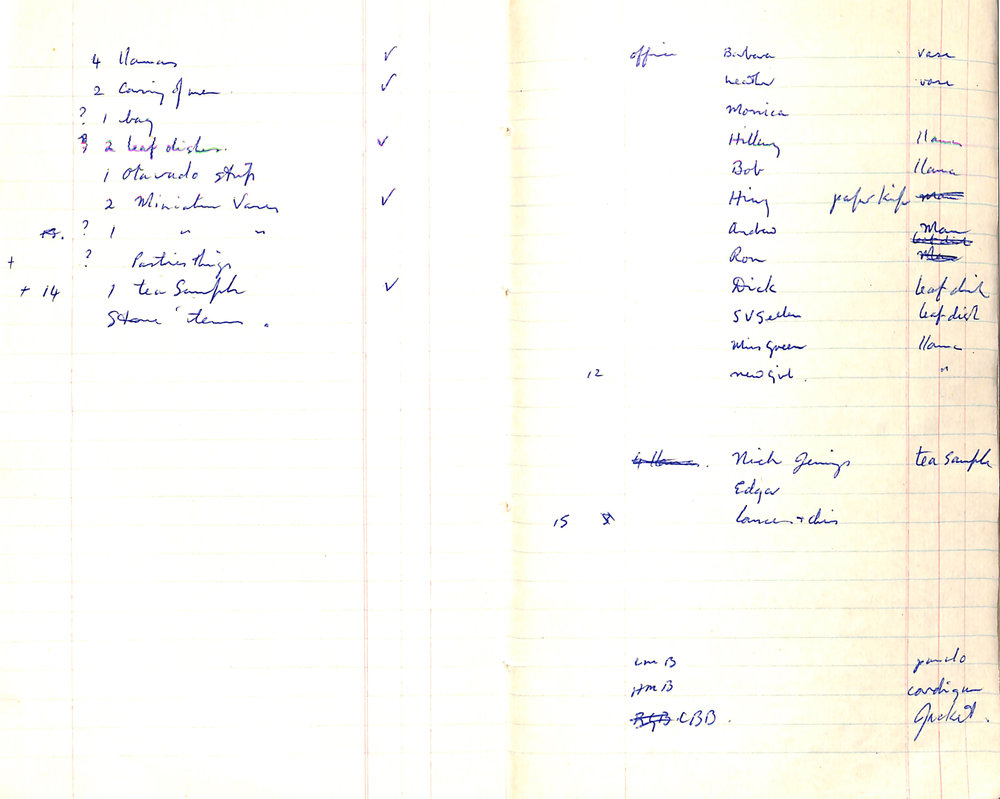 4 llamas ✓
2 Carving of men ✓
? 1 bag
? 2 leaf dishes. ✓
1 Otavado strip
2 Miniature Vases ✓
? 1 " "
+ ? Parties things
+ 14 1 tea Sample ✓
Stone items.
office Barbara vase
heather vase
Monica
Hillary llama
Bob llama
paper knife
Andrew Man
leaf dish
Ron
Dick leaf dish
leaf dish
Miss Green llama
12 new girl. "
4 llamas. Nick tea Sample
Edgar
15
HMB cardigan
CBB. Jacket.